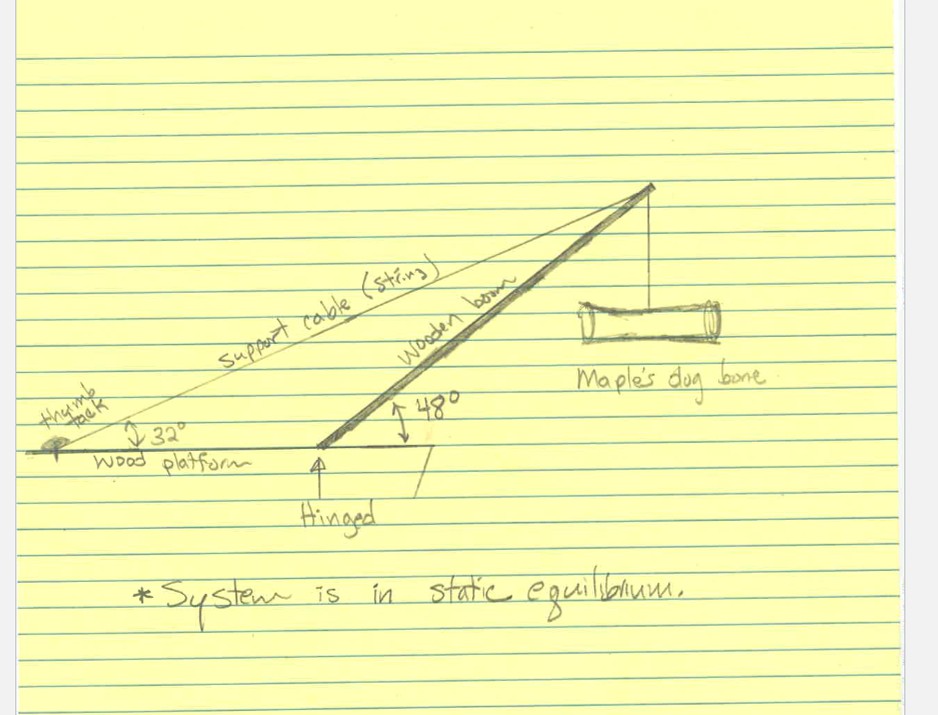 support cable (string)
Wooden boom
Maple's dog bone
thumb
tack
48°
32°
Wood platform
Hinged
* System is in static equilibrium.